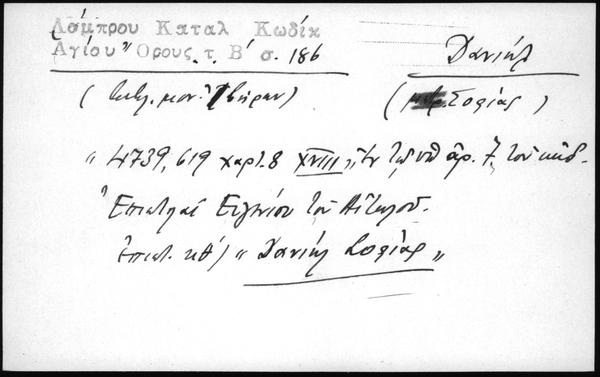 Λάμπρου Καταλ Κωδίκ
Αγίου Ορους τ. Β´ σ. 186
Δανιήλ
(Βιβλ. μον. Ἰβήρων)
(Σοφίας)
"4739, 619 χαρτ. 8 XVIII, " ἐν τῷ ὑπ ἀρ. 7 τοῦ κώδ.
Ἐπιστολαί Εὐγενίου τοῦ Αἰτωλοῦ.
ἐπιστ. κθ´) "Δανιήλ Σοφίας"